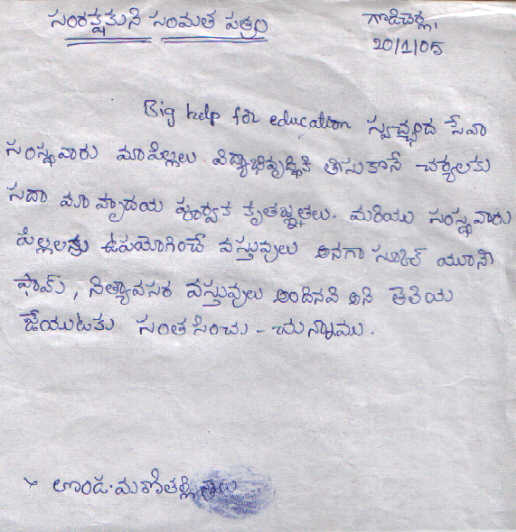 సంరక్షకుని సంమత పత్రం
గాడిచర్ల,
20/1/05
Big help for education స్వచ్ఛంద సేవా
సంస్థవారు మాపిల్లలు విద్యాభివృద్ధికి తీసుకొనే చర్యలకు
సదా మా హృదయ పూర్వక కృతజ్ఞతలు. మరియు సంస్థవారు
పిల్లలకు ఉపయోగించే వస్తువులు అనగా స్కూల్ యూనీ
ఫామ్, నిత్యావసర వస్తువులు అందినవి అని తెలియ
జేయుటకు సంతసించు - చున్నాము.